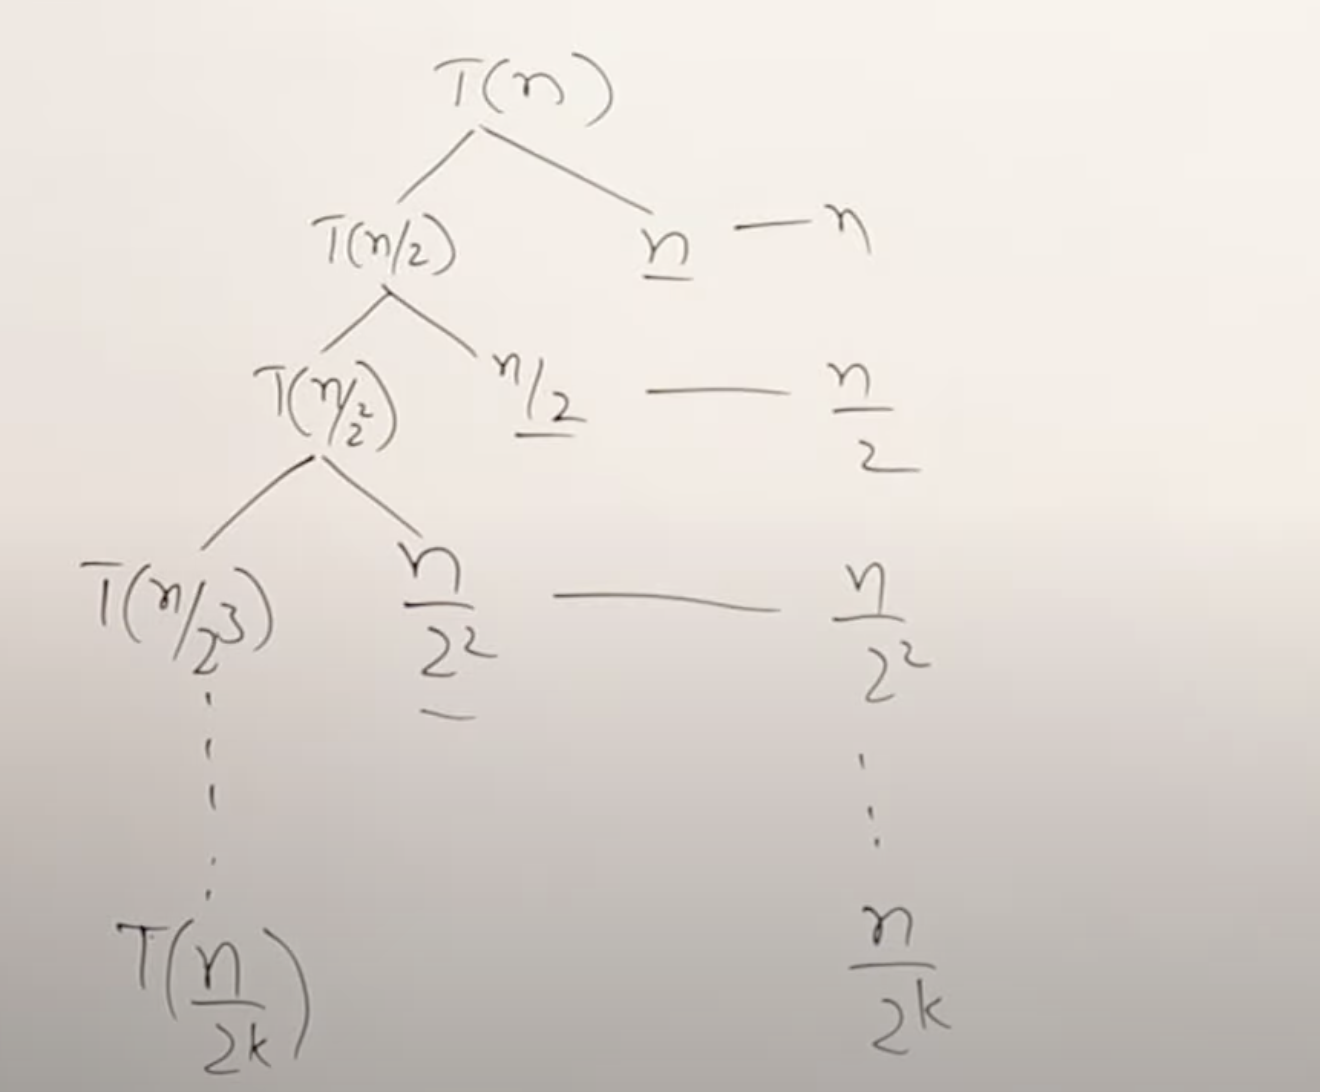 T(n)
T(n/2) n — n
T(n/2²) n/2 — n/2
T(n/2³) n/2² — n/2²
T(n/2ᵏ) n/2ᵏ